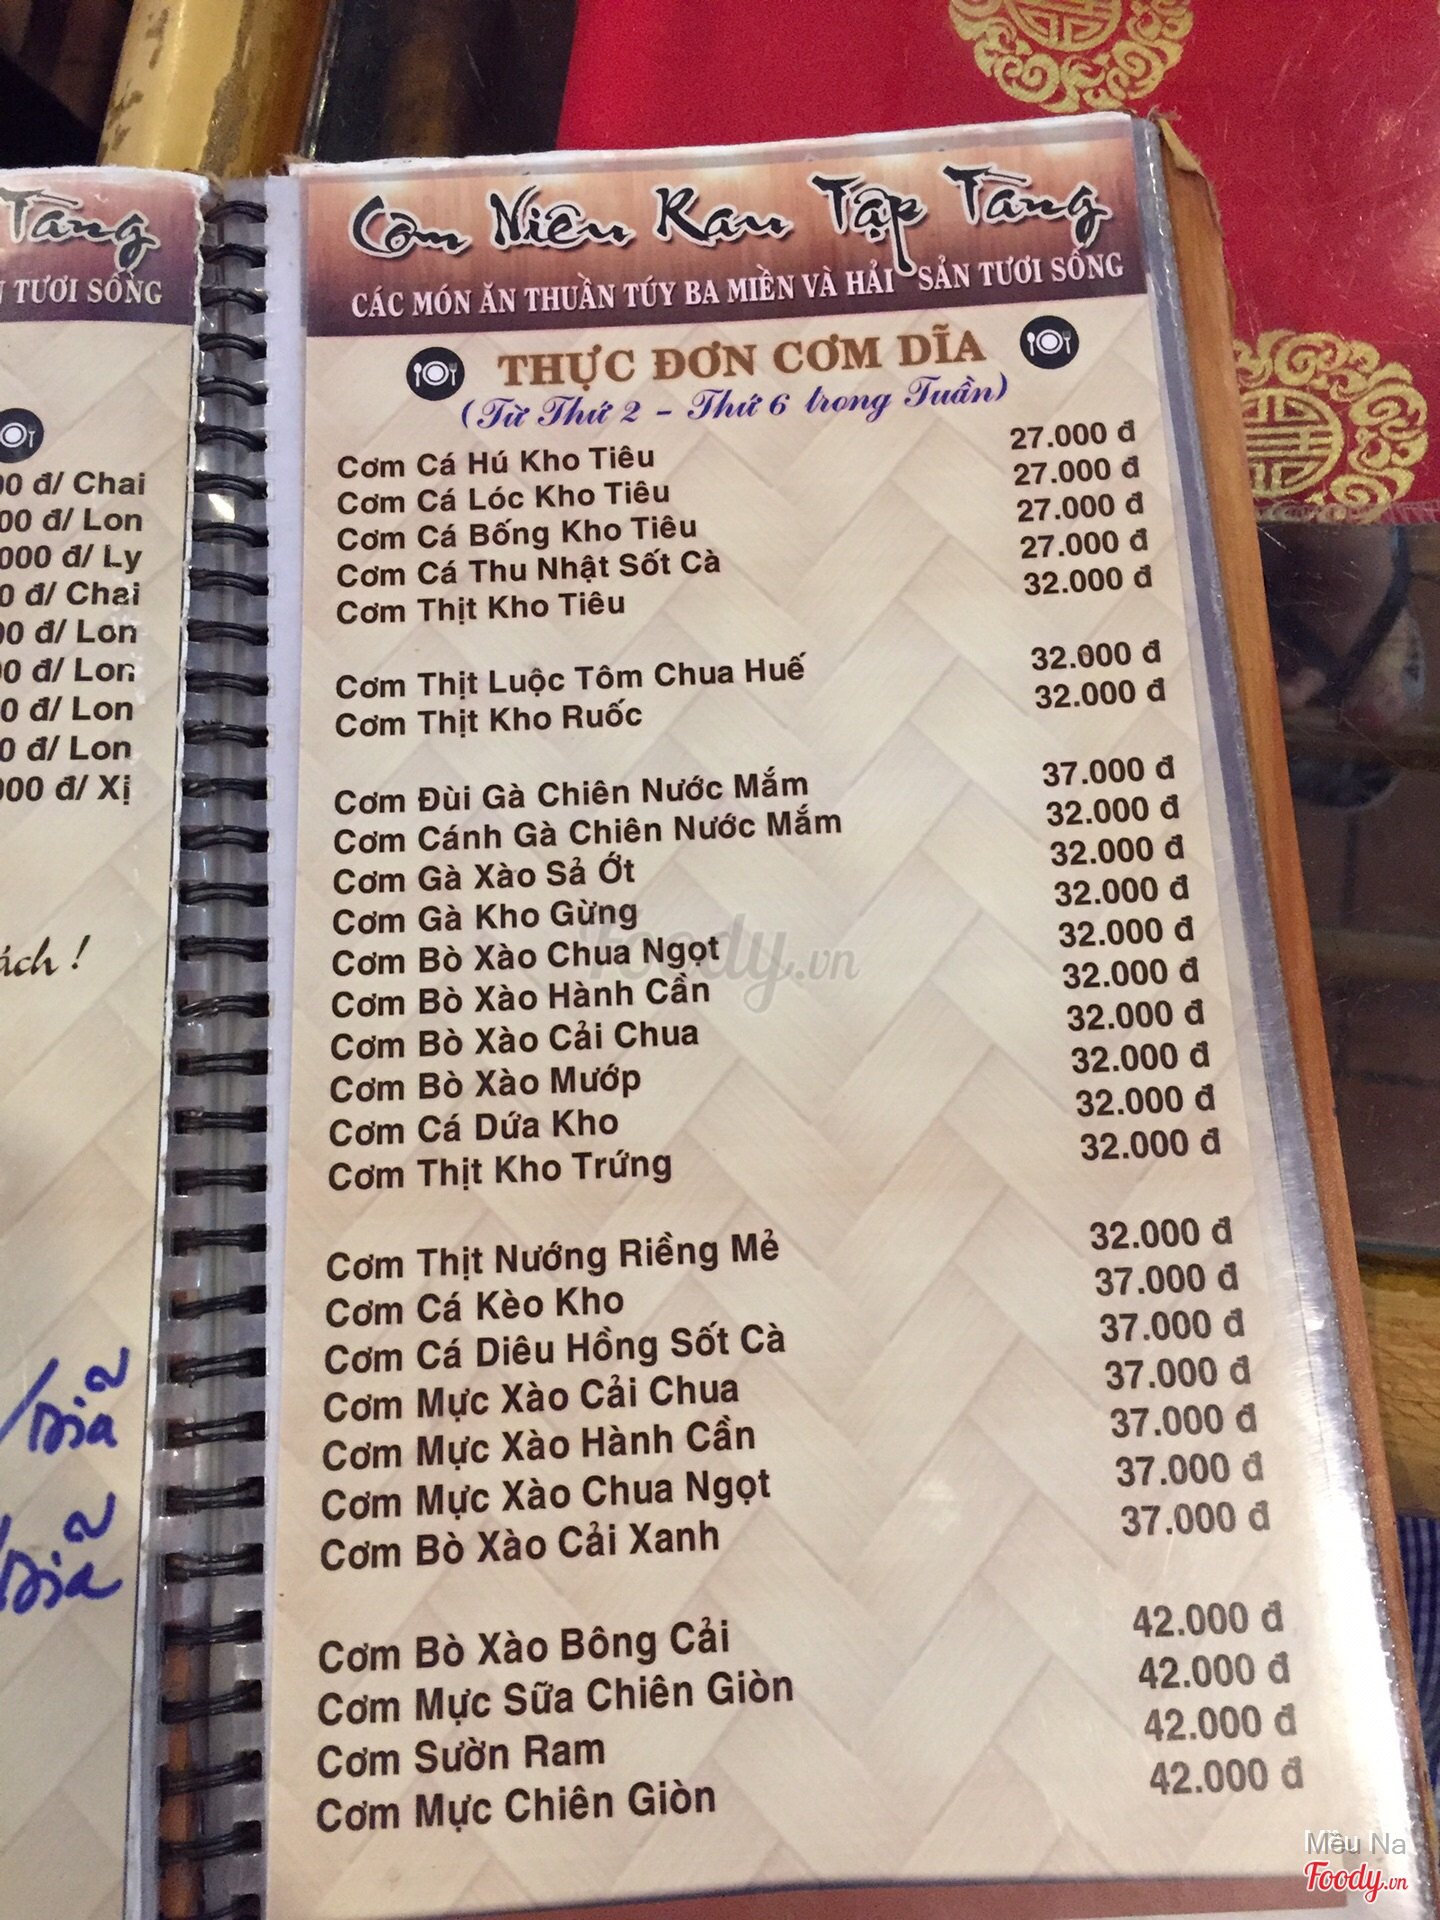 Tàng
TƯƠI SỐNG
00 đ/ Chai
00 đ/ Lon
.000 đ/ Ly
0 đ/ Chai
00 đ/ Lon
0 đ/ Lon
0 đ/ Lon
0 đ/ Lon
000 đ/ Xị
ách !
/Dĩa
/Dĩa
Cơm Niêu Rau Tập Tàng
CÁC MÓN ĂN THUẦN TÚY BA MIỀN VÀ HẢI SẢN TƯƠI SỐNG
THỰC ĐƠN CƠM DĨA
(Từ Thứ 2 - Thứ 6 trong Tuần)
Cơm Cá Hú Kho Tiêu 27.000 đ
Cơm Cá Lóc Kho Tiêu 27.000 đ
Cơm Cá Bống Kho Tiêu 27.000 đ
Cơm Cá Thu Nhật Sốt Cà 27.000 đ
Cơm Thịt Kho Tiêu 32.000 đ
Cơm Thịt Luộc Tôm Chua Huế 32.000 đ
Cơm Thịt Kho Ruốc 32.000 đ
Cơm Đùi Gà Chiên Nước Mắm 37.000 đ
Cơm Cánh Gà Chiên Nước Mắm 32.000 đ
Cơm Gà Xào Sả Ớt 32.000 đ
Cơm Gà Kho Gừng 32.000 đ
Cơm Bò Xào Chua Ngọt 32.000 đ
Cơm Bò Xào Hành Cần 32.000 đ
Cơm Bò Xào Cải Chua 32.000 đ
Cơm Bò Xào Mướp 32.000 đ
Cơm Cá Dứa Kho 32.000 đ
Cơm Thịt Kho Trứng 32.000 đ
Cơm Thịt Nướng Riềng Mẻ 32.000 đ
Cơm Cá Kèo Kho 37.000 đ
Cơm Cá Diêu Hồng Sốt Cà 37.000 đ
Cơm Mực Xào Cải Chua 37.000 đ
Cơm Mực Xào Hành Cần 37.000 đ
Cơm Mực Xào Chua Ngọt 37.000 đ
Cơm Bò Xào Cải Xanh 37.000 đ
Cơm Bò Xào Bông Cải 42.000 đ
Cơm Mực Sữa Chiên Giòn 42.000 đ
Cơm Sườn Ram 42.000 đ
Cơm Mực Chiên Giòn 42.000 đ
Foody.vn
Mều Na
Foody.vn